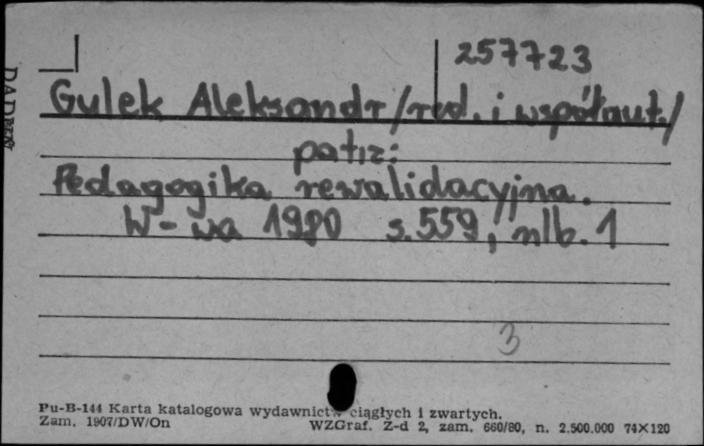 257723
Gulek Aleksandr /red. i współaut./
patrz:
Pedagogika rewalidacyjna.
W-wa 1980 s. 559, nlb. 1
3
Pu-B-144 Karta katalogowa wydawnictw ciągłych i zwartych.
Zam. 1907/DW/On WZGraf. Z-d 2, zam. 660/80, n. 2.500.000 74×120